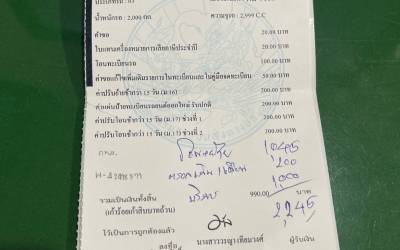 น้ำหนักรถ : 2,000 กก. ความจุรถ : 2,999 C.C
ค่าขอ 20.00 บาท
ใบแทนเครื่องหมายการเสียภาษีประจำปี 20.00 บาท
โอนทะเบียนรถ 100.00 บาท
ค่าขอแก้ไขเพิ่มเติมรายการในทะเบียนและในคู่มือจดทะเบียน 50.00 บาท
ค่าปรับย้ายช้ากว่า 15 วัน (ม.16) 200.00 บาท
ค่าแผ่นป้ายทะเบียนรถยนต์ออกใหม่ รับปกติ 200.00 บาท
ค่าปรับโอนช้ากว่า 15 วัน (ม.17) ช่วงที่ 1 200.00 บาท
ค่าปรับโอนช้ากว่า 15 วัน (ม.17) ช่วงที่ 2 200.00 บาท
1,045
200
1,000
รวมเป็นเงินทั้งสิ้น 990.00 บาท
(เก้าร้อยเก้าสิบบาทถ้วน) 2,245
ไว้เป็นการถูกต้องแล้ว
ลงชื่อ ผู้รับเงิน